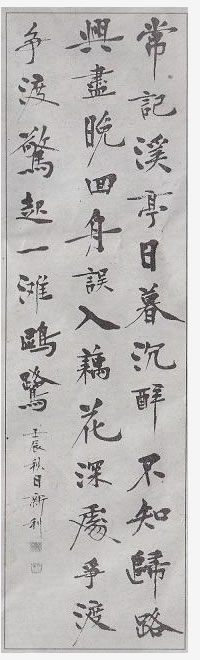 常記溪亭日暮沉醉不知歸路
興盡晚回舟誤入藕花深處爭渡
爭渡驚起一灘鷗鷺
壬辰秋日新利